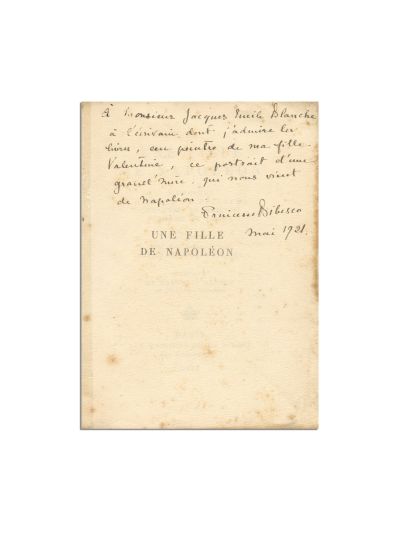 À Monsieur Jacques Emile Blanche
à l'écrivain dont j'admire les
livres, au peintre de ma fille
Valentine, ce portrait d'une
grand'mère qui nous vient
de Napoléon.
Princesse Bibesco
mai 1921.
UNE FILLE
DE NAPOLÉON